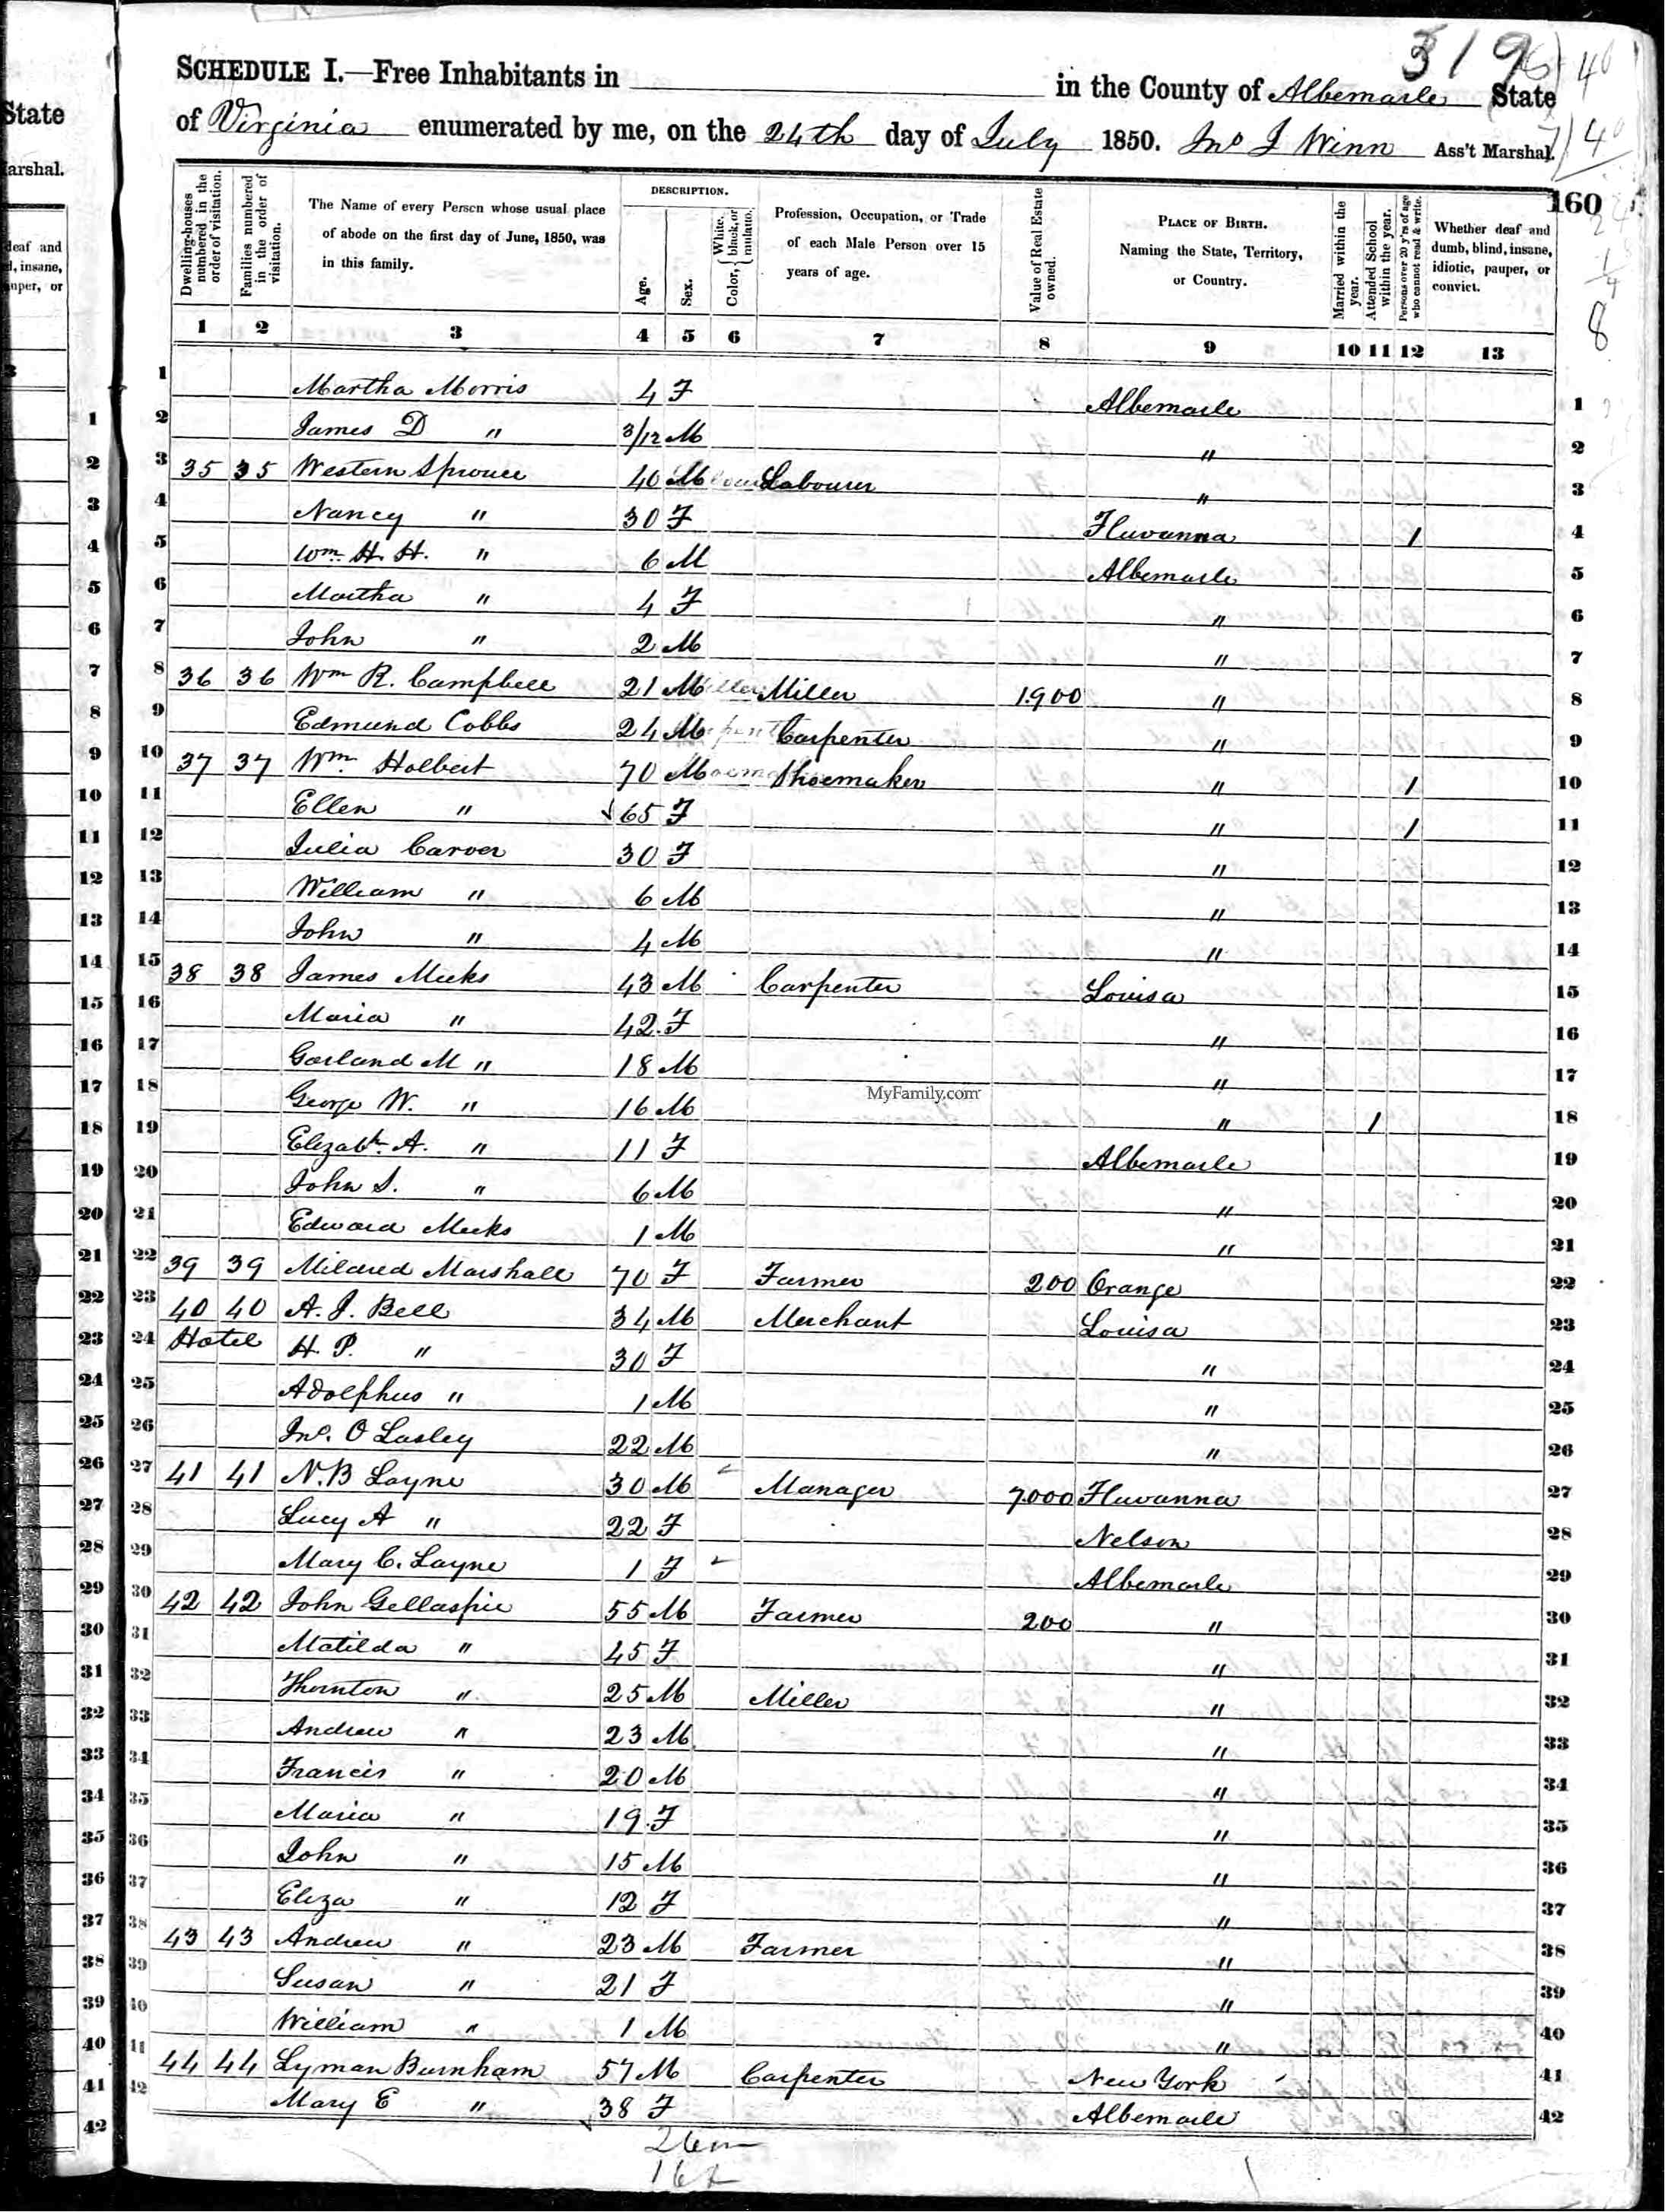 State
arshal.
deaf and
l, insane,
uper, or
319
40
SCHEDULE I.—Free Inhabitants in in the County of Albemarle State
of Virginia enumerated by me, on the 24th day of July 1850. Jno J Winn Ass't Marshal.
160
Dwelling-houses numbered in the order of visitation.
Families numbered in the order of visitation.
The Name of every Person whose usual place of abode on the first day of June, 1850, was in this family.
DESCRIPTION.
Age.
Sex.
Color, { White, black, or mulatto.
Profession, Occupation, or Trade of each Male Person over 15 years of age.
Value of Real Estate owned.
PLACE OF BIRTH. Naming the State, Territory, or Country.
Married within the year.
Attended School within the year.
Persons over 20 y'rs of age who cannot read & write.
Whether deaf and dumb, blind, insane, idiotic, pauper, or convict.
1 2 3 4 5 6 7 8 9 10 11 12 13
1 Martha Morris 4 F Albemarle 1
2 James D " 3/12 M " 2
3 35 35 Western Sprouce 40 M Labourer " 3
4 Nancy " 30 F Fluvanna 1 4
5 Wm H. H. " 6 M Albemarle 5
6 Martha " 4 F " 6
7 John " 2 M " 7
8 36 36 Wm R. Campbell 21 M Miller 1.900 " 8
9 Edmund Cobbs 24 M Carpenter " 9
10 37 37 Wm. Holbert 70 M Shoemaker " 1 10
11 Ellen " 65 F " 1 11
12 Julia Carver 30 F " 12
13 William " 6 M " 13
14 John " 4 M " 14
15 38 38 James Meeks 43 M Carpenter Louisa 15
16 Maria " 42 F " 16
17 Garland M " 18 M " 17
MyFamily.com
18 George W. " 16 M " 1 18
19 Elizabth A. " 11 F Albemarle 19
20 John S. " 6 M " 20
21 Edward Meeks 1 M " 21
22 39 39 Mildred Marshall 70 F Farmer 200 Orange 22
23 40 40 A. J. Bell 34 M Merchant Louisa 23
24 Hotel H. P. " 30 F " 24
25 Adolphus " 1 M " 25
26 Jno. O Lasley 22 M " 26
27 41 41 N. B Layne 30 M Manager 7.000 Fluvanna 27
28 Lucy A " 22 F Nelson 28
29 Mary C. Layne 1 F Albemarle 29
30 42 42 John Gellaspie 55 M Farmer 200 " 30
31 Matilda " 45 F " 31
32 Thornton " 25 M Miller " 32
33 Andrew " 23 M " 33
34 Francis " 20 M " 34
35 Maria " 19 F " 35
36 John " 15 M " 36
37 Eliza " 12 F " 37
38 43 43 Andrew " 23 M Farmer " 38
39 Susan " 21 F " 39
40 William " 1 M " 40
41 44 44 Lyman Burnham 57 M Carpenter New York 41
42 Mary E " 38 F Albemarle 42
26 m
16 f